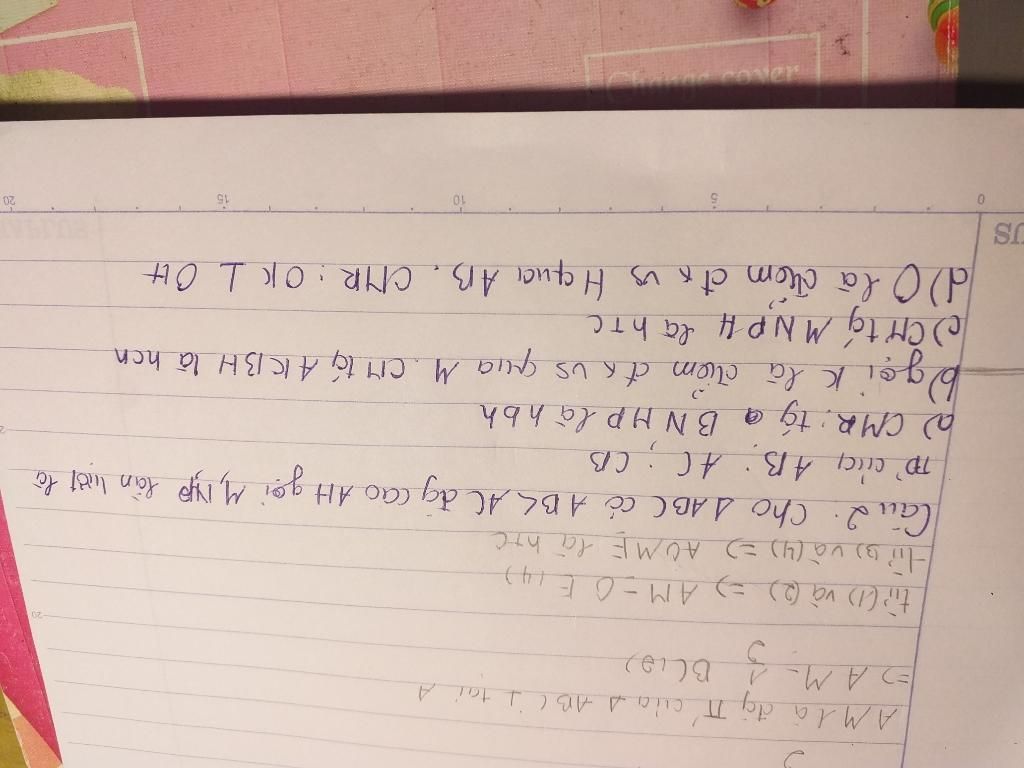 AM là đg TT của Δ ABC ⊥ tại A
=> AM = 1/2 BC (2)
từ (1) và (2) => AM = OE (4)
từ (3) và (4) => AOME là htc
Câu 2. Cho Δ ABC có AB < AC đg cao AH gọi M, N, P lần lượt là
TĐ của AB; AC; CB
a) CMR: tg BNMP là hbh
b) gọi K là điểm đx vs qua M. CM tg AKBH là hcn
c) CM tg MNPH là htc
d) O là điểm đx vs H qua AB. CMR: OK ⊥ OH
0 5 10 15 20
US
Change cover
20